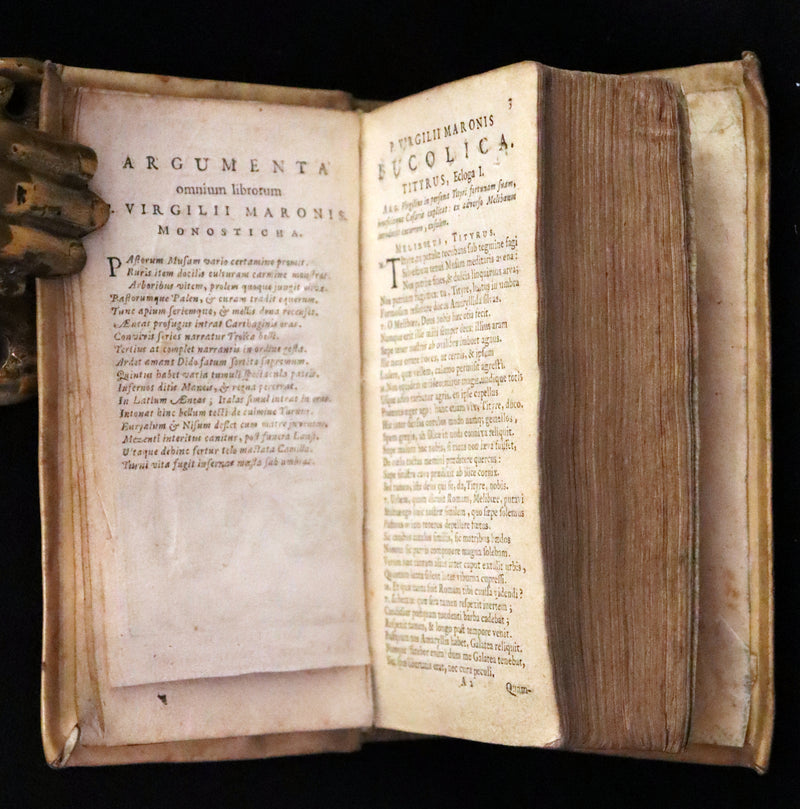 ARGUMENTA
omnium librorum
. VIRGILII MARONIS.
MONOSTICHA.
PAstorum Musam vario certamine promit.
Ruris item docilis culturam carmine monstrat.
Arboribus vitem, prolem quoque jungit olivæ.
Pastorumque Palen, & curam tradit equorum.
Tunc apium seriemque, & mellis dona recenset.
Æneas profugus intrat Carthaginis oras.
Conviviis series narratur Troica belli.
Tertius at complet narrantis in ordine gesta.
Ardet amans Dido fatum sortita supremum.
Quintus habet varia tumuli spectacula patris.
Infernos ditis Maneis, & regna pererrat.
In Latium Æneas; Italas simul intrat in oras.
Intonat hinc bellum tecti de culmine Turnus.
Euryalum & Nisum deflet cum matre juventus.
Mezenti interitus canitur, post funera Lausi.
Utque debinc fertur telo mactata Camilla.
Turni vita fugit infernas mæsta sub umbras.
3
P. VIRGILII MARONIS
BUCOLICA.
TITYRUS, Ecloga I.
ARG. Virgilius in persona Tityri fortunam suam,
beneficiumque Cæsaris explicat: ex adverso Melibœus
MELIBŒUS, TITYRUS.
TItyre, tu patulæ recubans sub tegmine fagi
Silvestrem tenui Musam meditaris avena:
Nos patriæ fines, & dulcia linquimus arva;
Nos patriam fugimus: tu, Tityre, lentus in umbra
Formosam resonare doces Amaryllida silvas.
T. O Melibœe, Deus nobis hæc otia fecit.
Namque erit ille mihi semper deus: illius aram
Sæpe tener nostris ab ovilibus imbuet agnus.
Ille meas errare boves, ut cernis, & ipsum
Ludere, quæ vellem, calamo permisit agresti.
M. Non equidem invideo: miror magis: undique totis
Usque adeo turbatur agris, en ipse capellas
Protenus æger ago: hanc etiam vix, Tityre, duco.
Hic inter densas corulos modo namque gemellos,
Spem gregis, ah silice in nuda connixa reliquit.
Sæpe malum hoc nobis, si mens non læva fuisset,
De cœlo tactas memini prædicere quercus:
Sæpe sinistra cava prædixit ab ilice cornix.
Sed tamen, iste deus qui sit, da, Tityre, nobis.
T. Urbem, quam dicunt Romam, Melibœe, putavi
Stultus ego huic nostræ similem, quo sæpe solemus
Pastores ovium teneros depellere fœtus.
Sic canibus catulos similis, sic matribus hædos
Noram: sic parvis componere magna solebam.
Verum hæc tantum alias inter caput extulit urbes,
Quantum lenta solent inter viburna cupressi.
M. Et quæ tanta fuit Romam tibi caussa videndi?
T. Libertas: quæ sera tamen respexit inertem;
Candidior postquam tondenti barba cadebat;
Respexit tamen, & longo post tempore venit.
Postquam nos Amaryllis habet, Galatea reliquit.
Namque fatebor enim dum me Galatea tenebat,
Nec spes libertatis erat, nec cura peculi.
A 2
Quam-